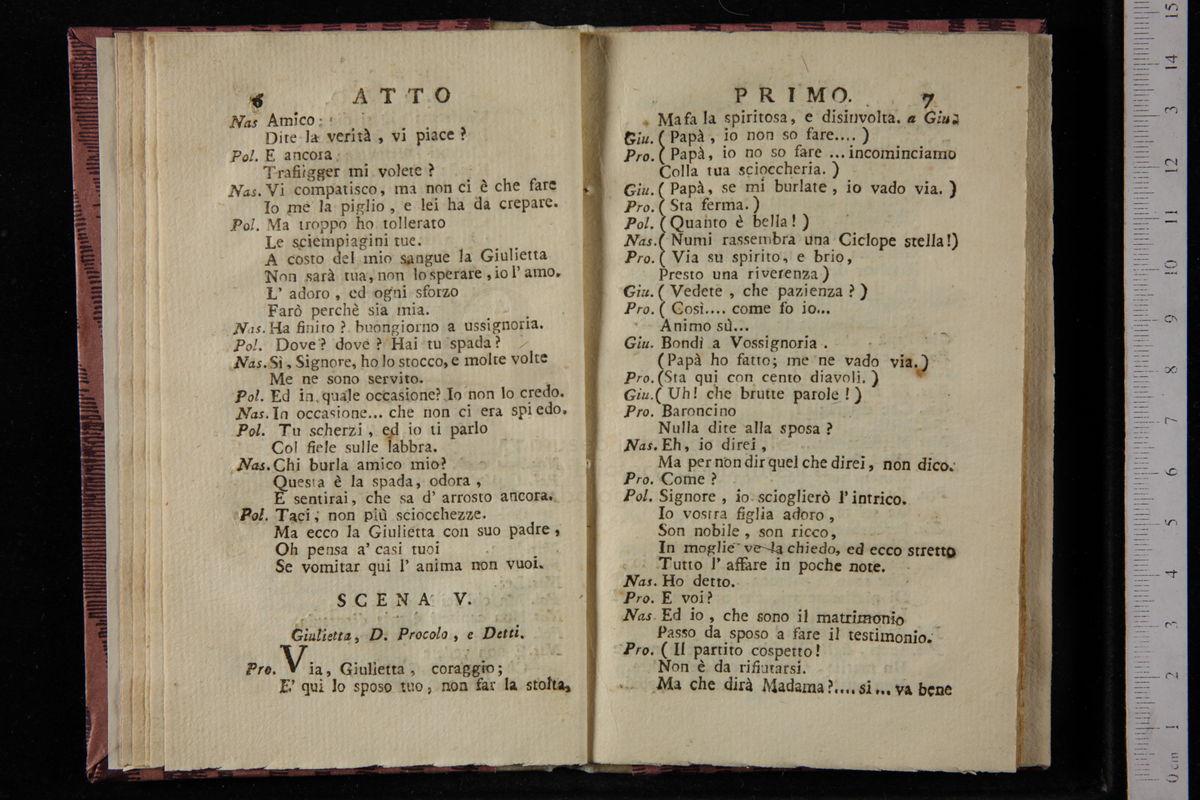 6 ATTO
Nas Amico:
Dite la verità, vi piace?
Pol. E ancora
Trafiigger mi volete?
Nas. Vi compatisco, ma non ci è che fare
Io me la piglio, e lei ha da crepare.
Pol. Ma troppo ho tollerato
Le sciempiagini tue.
A costo del mio sangue la Giulietta
Non sarà tua, non lo sperare, io l'amo.
L' adoro, ed ogni sforzo
Farò perchè sia mia.
Nas. Ha finito? buongiorno a ussignoria.
Pol. Dove? dove? Hai tu spada?
Nas. Sì, Signore, ho lo stocco, e molte volte
Me ne sono servito.
Pol. Ed in quale occasione? Io non lo credo.
Nas. In occasione... che non ci era spiedo.
Pol. Tu scherzi, ed io ti parlo
Col fiele sulle labbra.
Nas. Chi burla amico mio?
Questa è la spada, odora,
E sentirai, che sa d' arrosto ancora.
Pol. Taci, non più sciocchezze.
Ma ecco la Giulietta con suo padre,
Oh pensa a' casi tuoi
Se vomitar qui l' anima non vuoi.
SCENA V.
Giulietta, D. Procolo, e Detti.
Pro. Via, Giulietta, coraggio;
E' qui lo sposo tuo, non far la stolta,
PRIMO. 7
Ma fa la spiritosa, e disinvolta. a Giu.
Giu. (Papà, io non so fare....)
Pro. (Papà, io no so fare ... incominciamo
Colla tua scioccheria.)
Giu. (Papà, se mi burlate, io vado via.)
Pro. (Sta ferma.)
Pol. (Quanto è bella!)
Nas. (Numi rassembra una Ciclope stella!)
Pro. (Via su spirito, e brio,
Presto una riverenza)
Giu. (Vedete, che pazienza?)
Pro. (Così.... come fo io...
Animo sù...
Giu. Bondì a Vossignoria.
(Papà ho fatto; me ne vado via.)
Pro. (Sta qui con cento diavoli.)
Giu. (Uh! che brutte parole!)
Pro. Baroncino
Nulla dite alla sposa?
Nas. Eh, io direi,
Ma per non dir quel che direi, non dico.
Pro. Come?
Pol. Signore, io scioglierò l'intrico.
Io vostra figlia adoro,
Son nobile, son ricco,
In moglie ve la chiedo, ed ecco stretto
Tutto l' affare in poche note.
Nas. Ho detto.
Pro. E voi?
Nas Ed io, che sono il matrimonio
Passo da sposo a fare il testimonio.
Pro. (Il partito cospetto!
Non è da rifiutarsi.
Ma che dirà Madama?.... si... va bene
0 cm 1 2 3 4 5 6 7 8 9 10 11 12 3 14 15